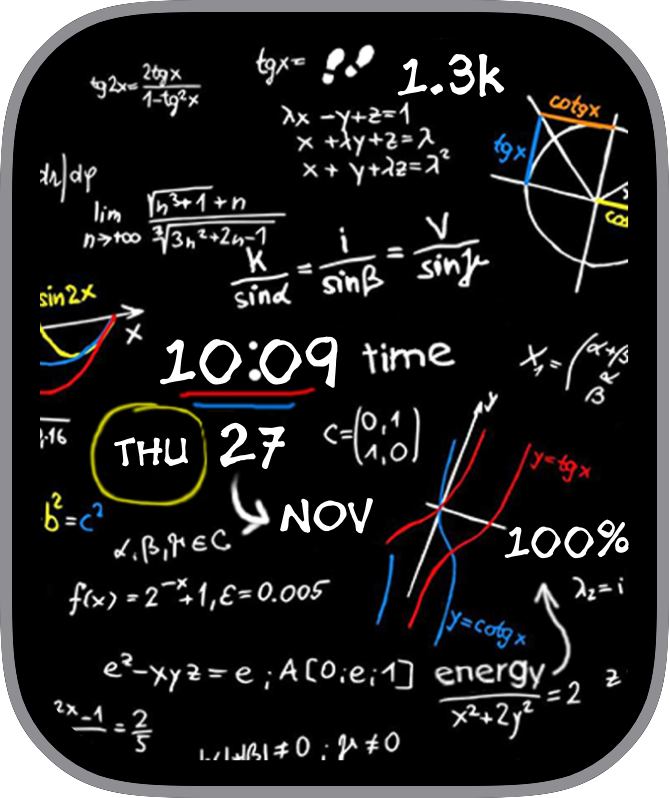 tg2x = 2tgx / 1-tg²x
tgx =
1.3k
λx - y + z = 1
x + λy + z = λ
x + y + λz = λ²
cotgx
tgx
dr/dφ
lim n→+∞ √n³+1 + n / ³√3n²+2n-1
k/sinα = i/sinβ = V/sinγ
sin2x
x
10:09 time
THU 27
C = (0,1
1,0)
y
y=tgx
b² = c²
NOV
100%
α,β,γ ∈ C
f(x) = 2⁻ˣ + 1, ε = 0.005
λ₂ = i
y=cotgx
e² - xyz = e ; A[0;e;1]
energy / x²+2y² = 2
z
2x-1 / = 2/5
≠ 0 ; γ ≠ 0